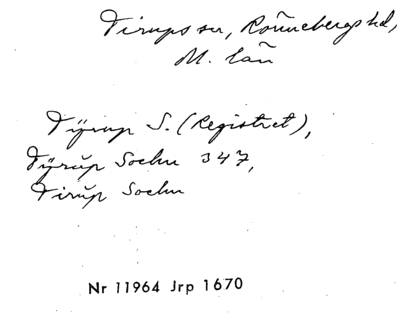 Tirups sn, Rönnebergs hd,
M. län
Tÿrup S. (Registret),
Tÿrŭp Soehn 347,
Tirŭp Soehn
Nr 11964 Jrp 1670